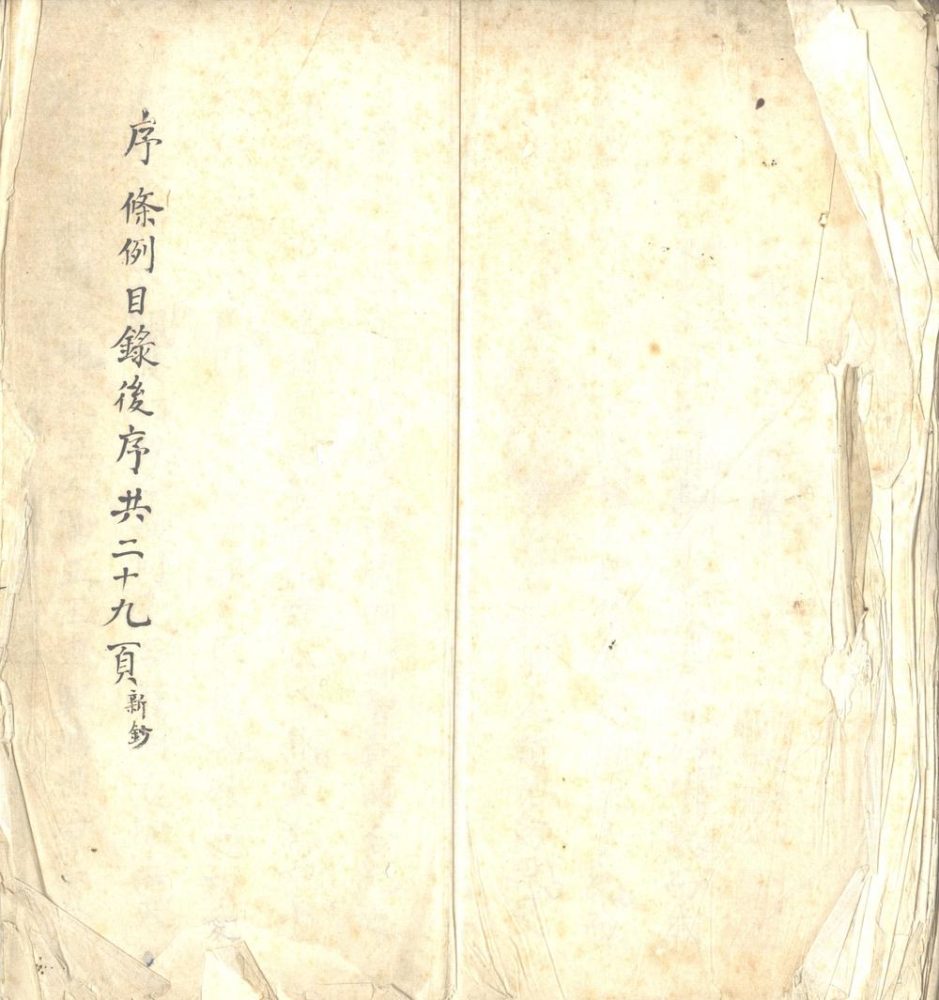 序 條例目錄後序共二十九頁新鈔